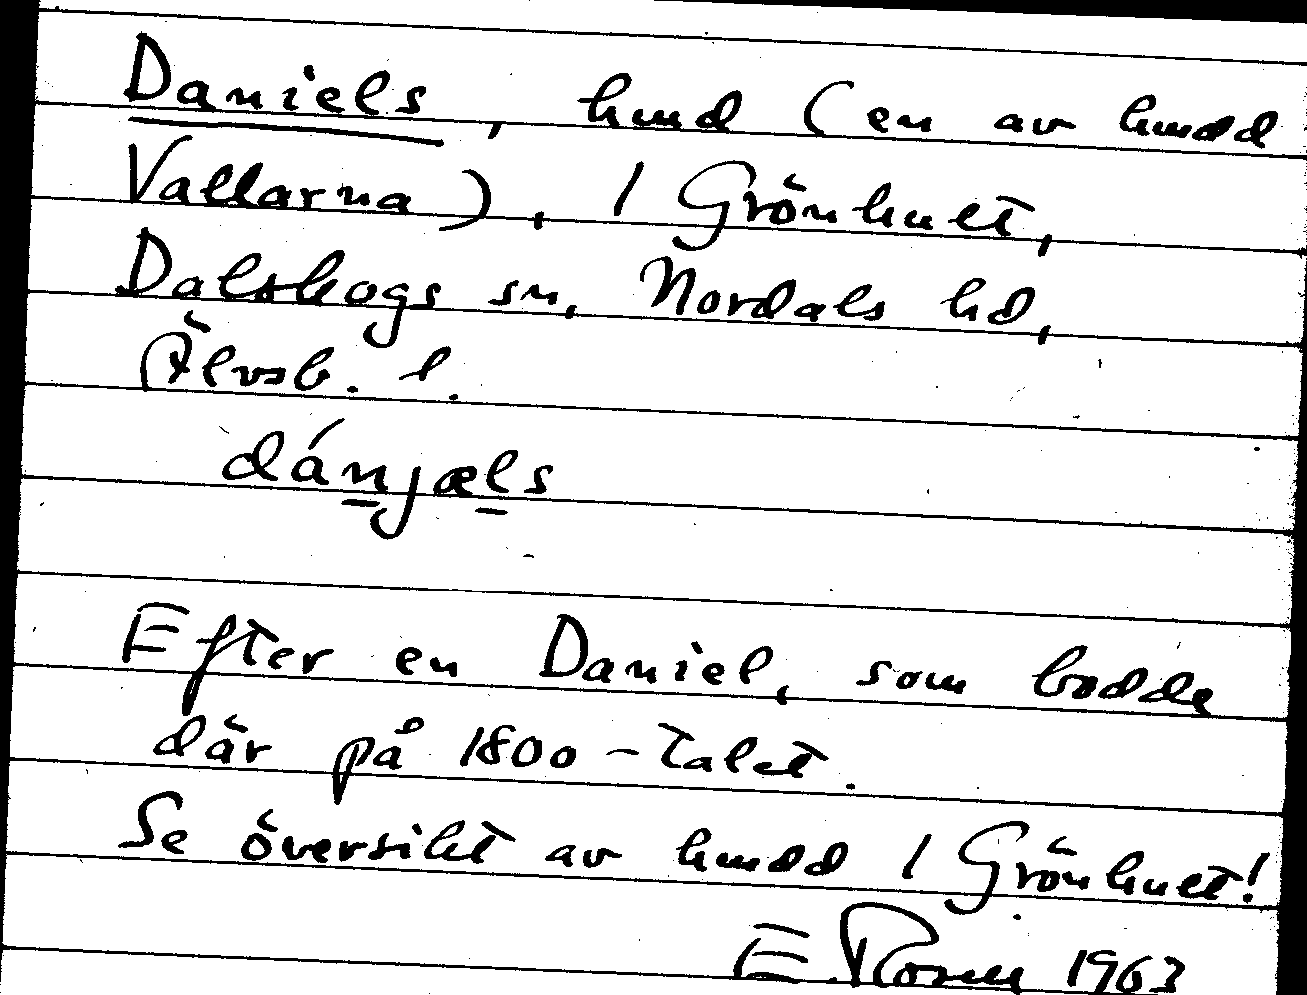 Daniels, hmd (en av hmdd
Vallarna), / Grönhult,
Dalskogs sn, Nordals hd,
Älvsb. l.
dánjæls
Efter en Daniel, som bodde
där på 1800-talet.
Se översikt av hmdd / Grönhult!
E Rosen 1963